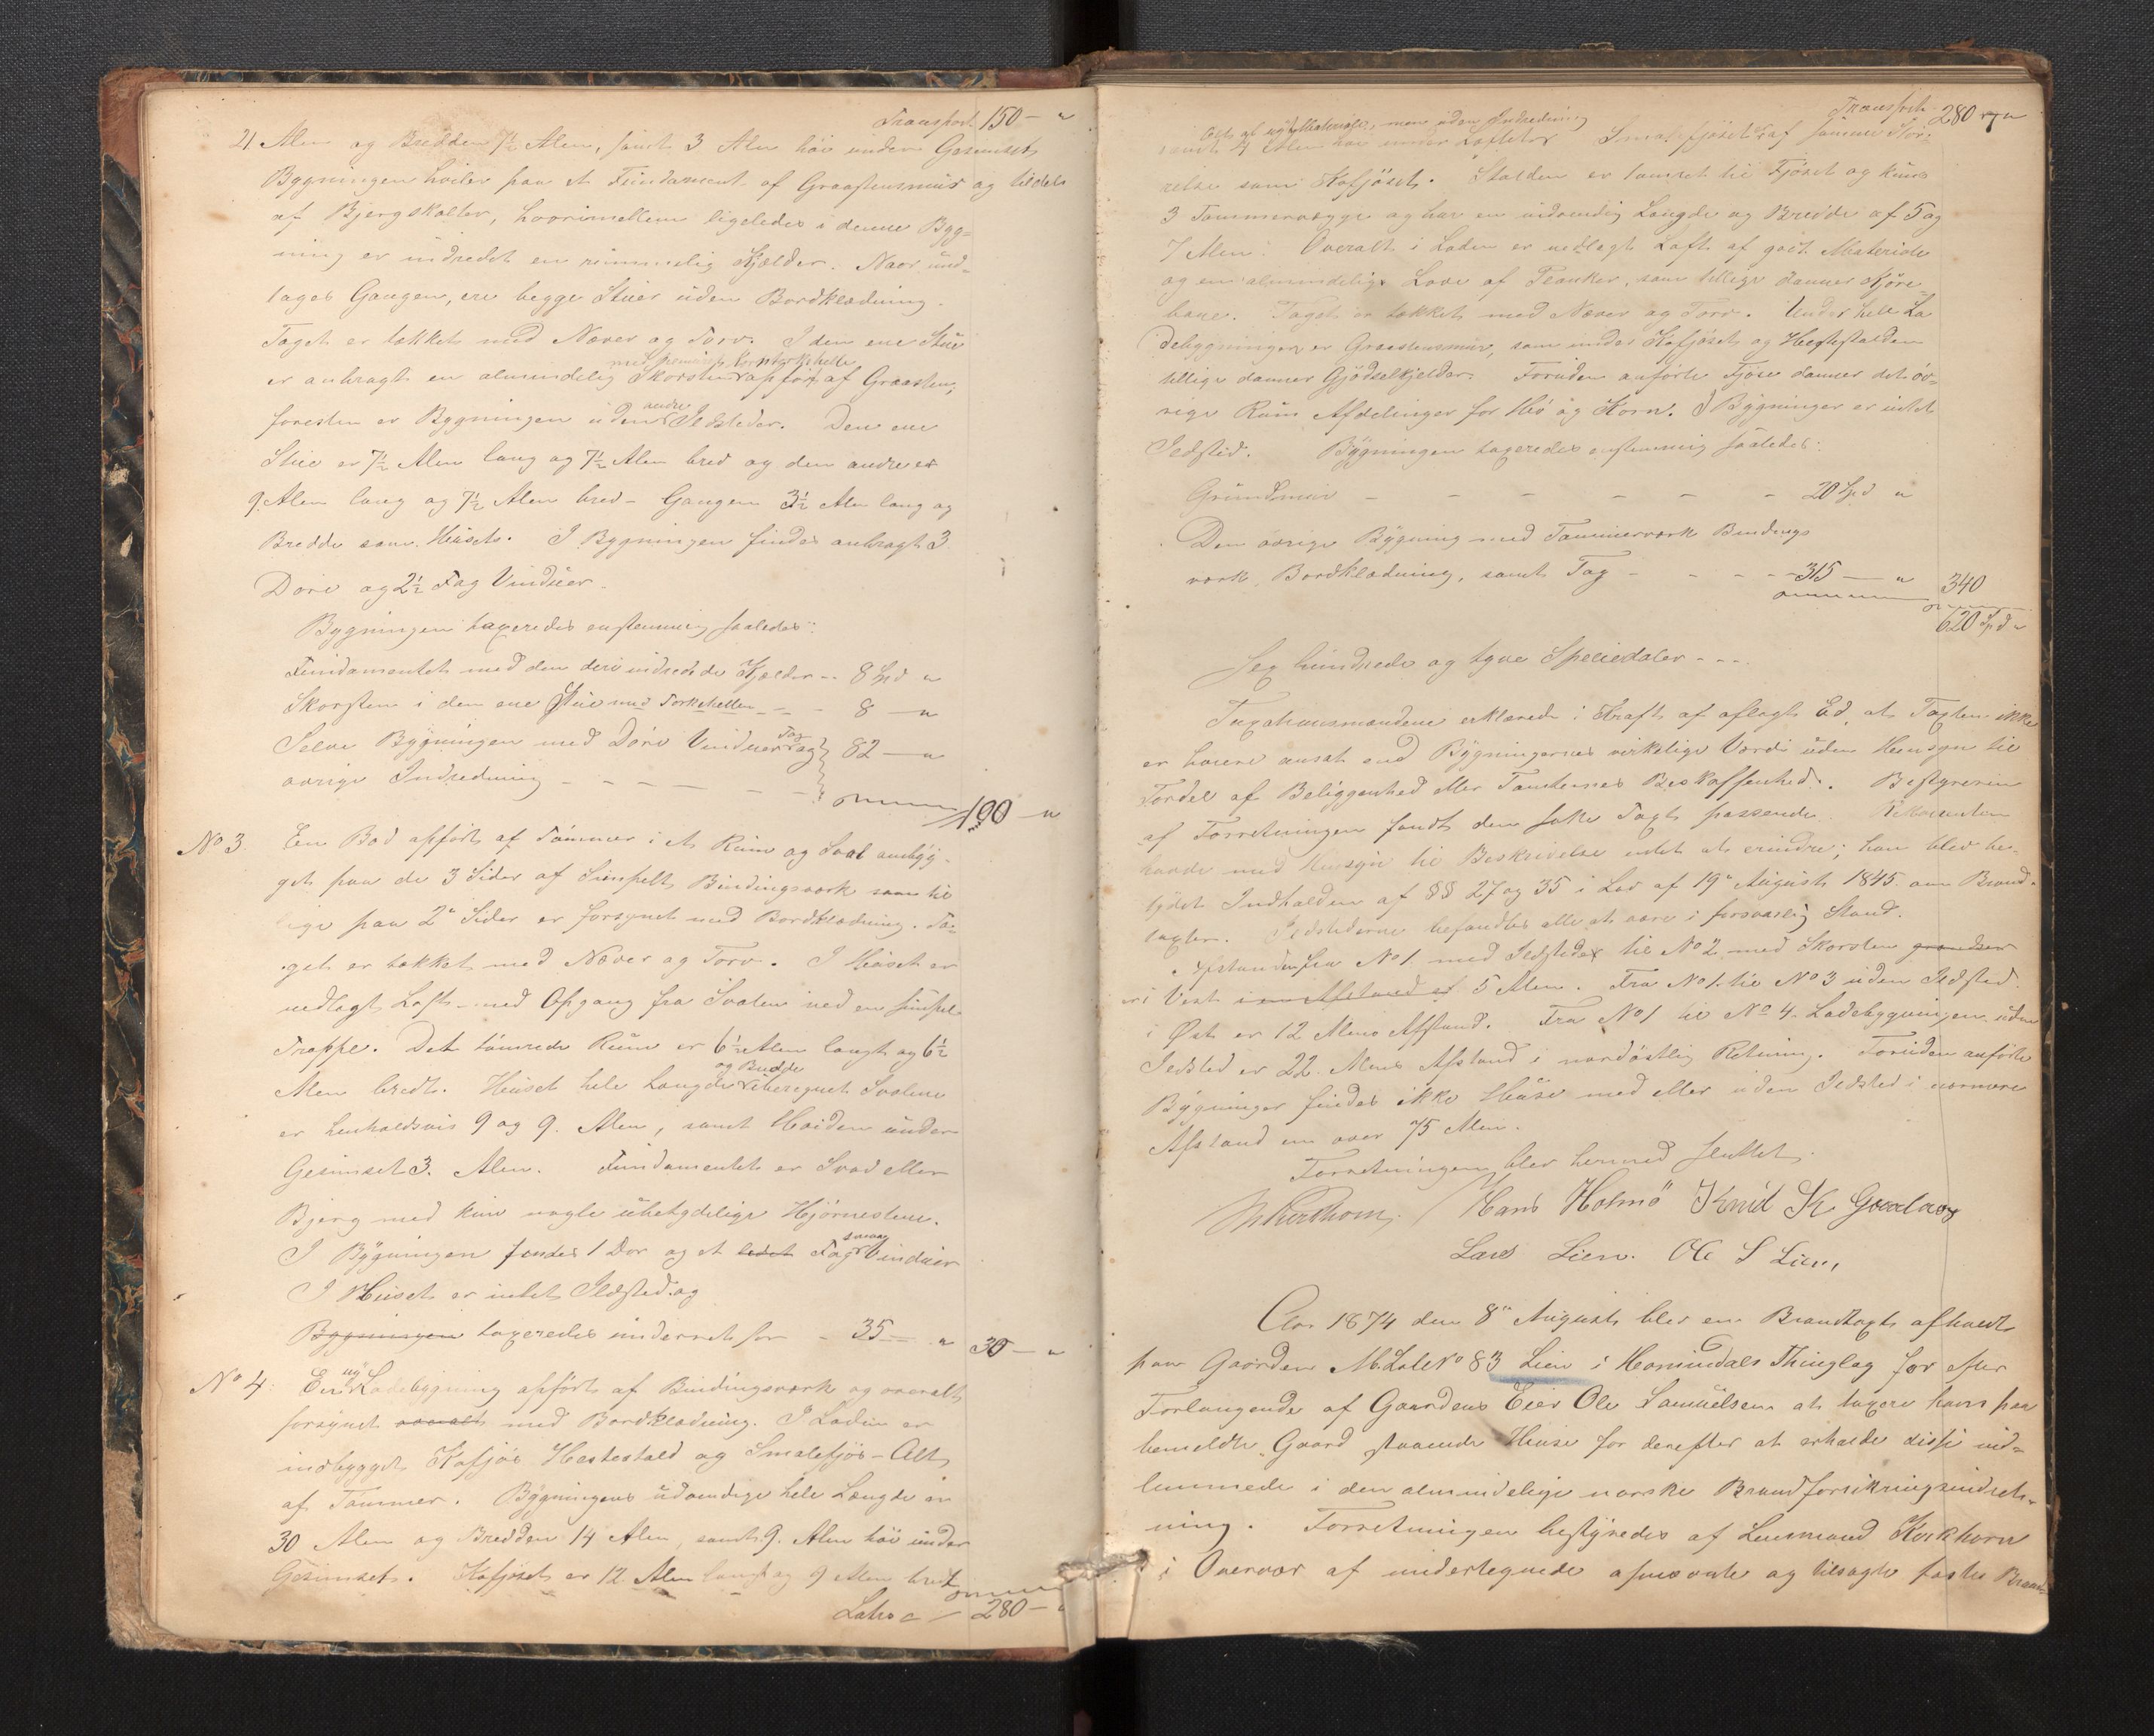 Transport 150 - "
21 Alen og Bredden 7½ Alen, samt 3 Alen høi under Gesimset
Bygningen hviler paa et Fundament af Graastensmur og tildels
af Bjergskolter, hvorimellem ligeledes i denne Byg=
ning er indredet en rummelig Kjælder. Naar und=
tages Gangen, ere begge Stuer uden Bordklædning.
Taget er tækket med Næver og Torv. I den ene Stue
er anbragt en almindelig Skorsten opført af Graasten,
foresten er Bygningen uden andre Ildsteder. Den ene
Stue er 7½ Alen lang og 7½ Alen bred og den andre er
9 Alen lang og 7½ Alen bred - Gangen 3½ Alen lang og
Bredde som Huset. I Bygningen findes anbragt 3
Døre og 2½ Fag Vinduer.
Bygningen taxeredes enstemmig saaledes:
Fundamentet med den deri indredede Kjælder -- 8 Spd "
Skorsten i den ene Stue med Torkehellen - - 8 - "
Selve Bygningen med Døre Vinduer Tag og } 82 - "
øvrige Indredning - - - - - -
100 - "
No 3. En Bod opført af Tømmer i et Rum og Sval ombyg-
get paa de 3 Sider af Simpelt Bindingsværk som til
lige paa 2de Sider er forsynet med Bordklædning. Ta-
get er tækket med Næver og Torv. I Huset er
nedlagt Loft med Opgang fra Svalen ved en simpel
Trappe. Det tømrede Rum er 6½ Alen langt og 6½
Alen bredt. Huset hele Længde og Bredde iberegnet Svalene
er henholdsvis 9 og 9 Alen, samt Høiden under
Gesimset 3 Alen. Fundamentet er Svad eller
Bjerg med kun nogle ubetydelige Hjørnestene.
I Bygningen findes 1 Dør og et lidet Fag smaa Vinduer
I Huset er intet Ildsted og
Bygningen taxeredes underret for - 35 - " 30 - "
No 4. En ny Ladebygning opført af Bindingsværk og overalt
forsynet overalt med Bordklædning. I Laden er
indbygget Kofjøs Hestestald og Smalefjøs - Alt
af Tømmer. Bygningens udvendige hele Længde er
30 Alen og Bredden 14 Alen, samt 9 Alen høi under
Gesimset. Kofjøset er 12 Alen langt og 9 Alen bredt
Latus 280 - "
Transport 280 - "
men uden Indredning
samt 4 Alen høi under Loftet Smalefjøset er af samme Stør-
relse som Kofjøset. Stalden er tømret til Fjøset og kuns
3 Tømmervægge og har en udvendig Længde og Bredde af 5 og
7 Alen. Overalt i Laden er nedlagt Loft af godt Materiale
og en almindelig Love af Planker, som tillige danner Kjøre-
bane. Taget er tækket med Næver og Torv. Under hele La
debygningen er Graastensmur, som under Kofjøset og Hestestalden
tillige danner Gjødselkjelder. Foruden anførte Fjøse danner det øv-
rige Rum Afdelinger for Hø og Korn. I Bygningen er intet
Ildsted. Bygningen taxeredes enstemmig saaledes:
Grundmur - - - - - - 20 Spd "
Den øvrige Bygning med Tømmerværk Bindings
værk, Bordklædning, samt Tag - - - - 315 - " 340
620 Spd "
Sex hundrede og tyve Speciedaler - - -
Taxationsmændene erklærede i Kraft af aflagt Ed, at Taxten ikke
er høiere ansat end Bygningernes virkelige Værdi uden Hensyn til
Fordel af Beliggenhed eller Tomternes Beskaffenhed. Bestyreren
af Forretningen fandt den satte Taxt passende. Rekvirenten
havde med Hensyn til Beskrivelse intet at erindre; han blev be-
tydet Indholden af §§ 27 og 35 i Lov af 19de August 1845 om Brand-
taxter. Ildstederne befandtes alle at være i forsvarlig Stand.
Afstanden fra No 1 med Ildsteder til No 2 med Skorsten
i Vest i en Afstand af 5 Alen. Fra No 1 til No 3 uden Ildsted
i Øst er 12 Alens Afstand. Fra No 1 til No 4 Ladebygningen uden
Ildsted er 22 Alens Afstand i nordøstlig Retning. Foruden anførte
Bygninger findes ikke Huse med eller uden Ildsted i nærmere
Afstand en over 75 Alen.
Forretningen blev hermed sluttet.
Hans Holmø Knud K
Lars Lien. Ole S Lien,
Aar 1874 den 8de August blev en Brandtaxt afholdt
paa Gaarden M. Løbe No 83 Lien i Hornindals Thinglag for efter
Forlangende af Gaardens Eier Ole Samuelsen at taxere hans paa
bemeldte Gaard staaende Huse for derefter at erholde disse ind-
lemmede i den almindelige norske Brandforsikringsindret-
ning. Forretningen bestyredes af Lensmand Kirkhorn
i Overvær af undertegnede opnævnte og tilsagte faste Brand-